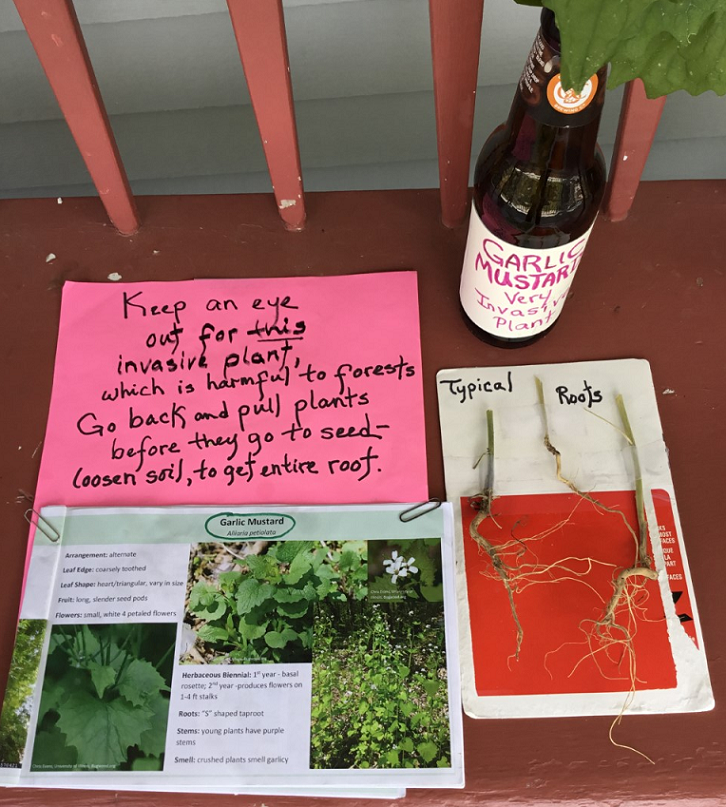 GARLIC
MUSTARD
Very
Invasive
Plant
Keep an eye
out for this
invasive plant,
which is harmful to forests
Go back and pull plants
before they go to seed-
loosen soil, to get entire root.
Typical Roots
Garlic Mustard
Alliaria petiolata
Arrangement: alternate
Leaf Edge: coarsely toothed
Leaf Shape: heart/triangular, vary in size
Fruit: long, slender seed pods
Flowers: small, white 4 petaled flowers
Herbaceous Biennial: 1st year - basal
rosette; 2nd year -produces flowers on
1-4 ft stalks
Roots: "S" shaped taproot
Stems: young plants have purple
stems
Smell: crushed plants smell garlicy